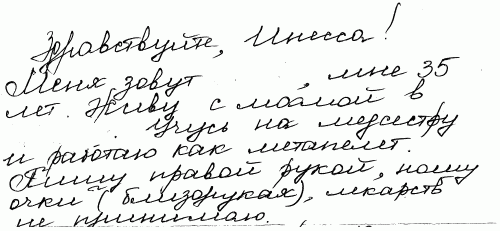 Здравствуйте, Инесса!
Меня зовут , мне 35
лет. Живу с мамой в
Учусь на медсестру
и работаю как метапелет.
Пишу правой рукой, ношу
очки (близорукая), лекарств
не принимаю.